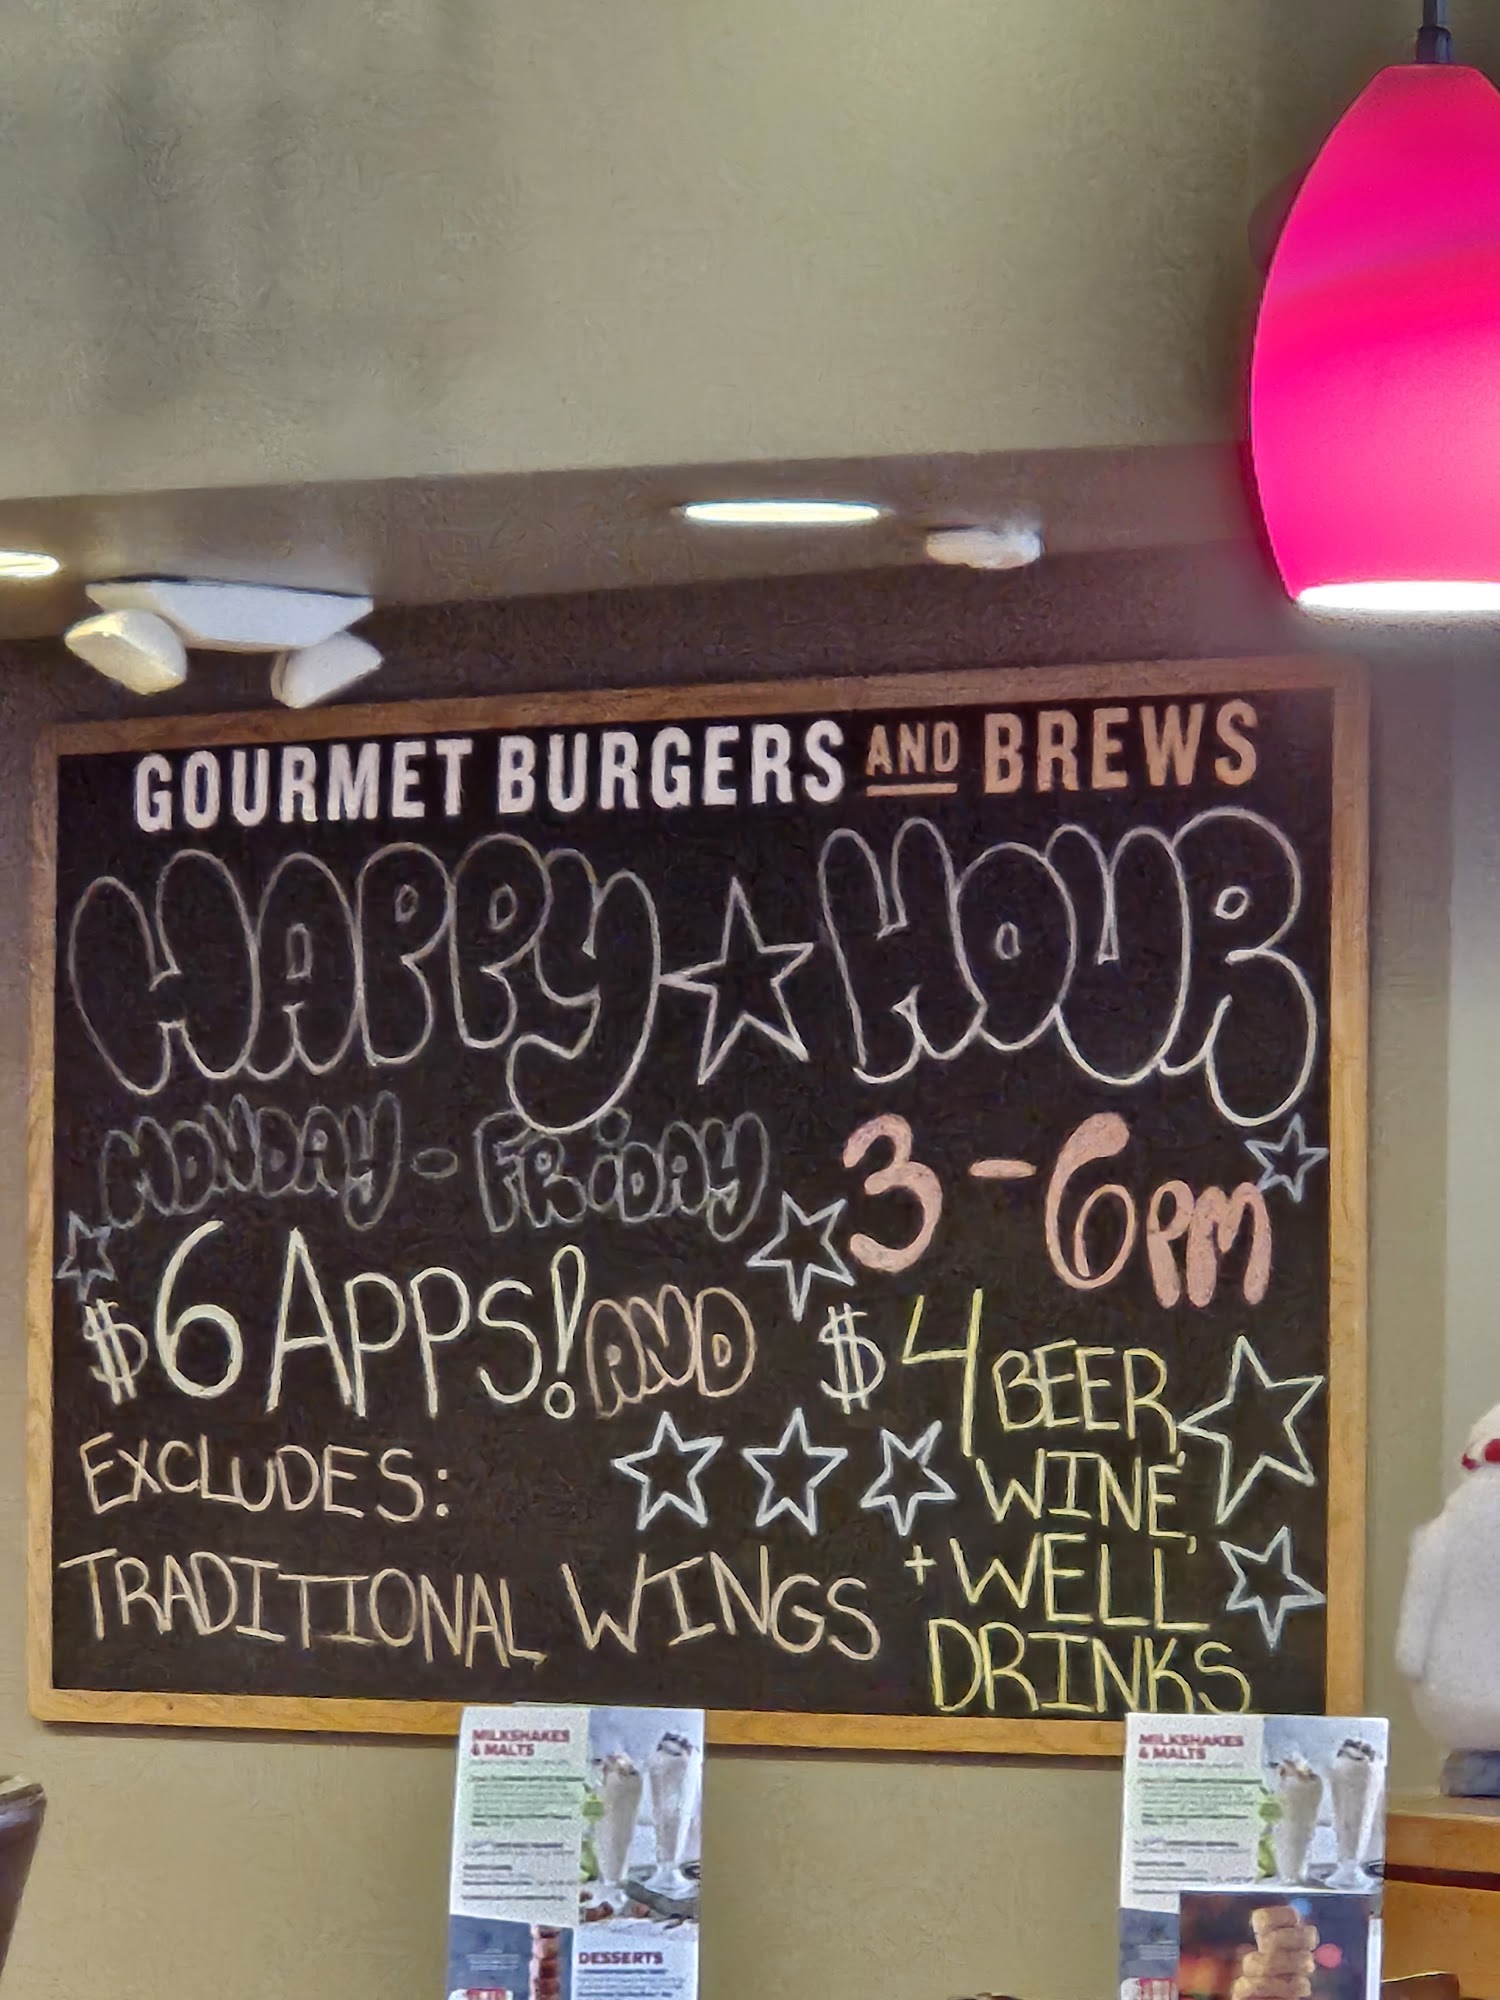 GOURMET BURGERS AND BREWS
HAPPY HOUR
MONDAY - FRIDAY 3-6PM
$6 APPS! AND
$4 BEER,
WINE,
+ WELL
DRINKS
EXCLUDES:
TRADITIONAL WINGS
MILKSHAKES
& MALTS
DESSERTS
MILKSHAKES
& MALTS